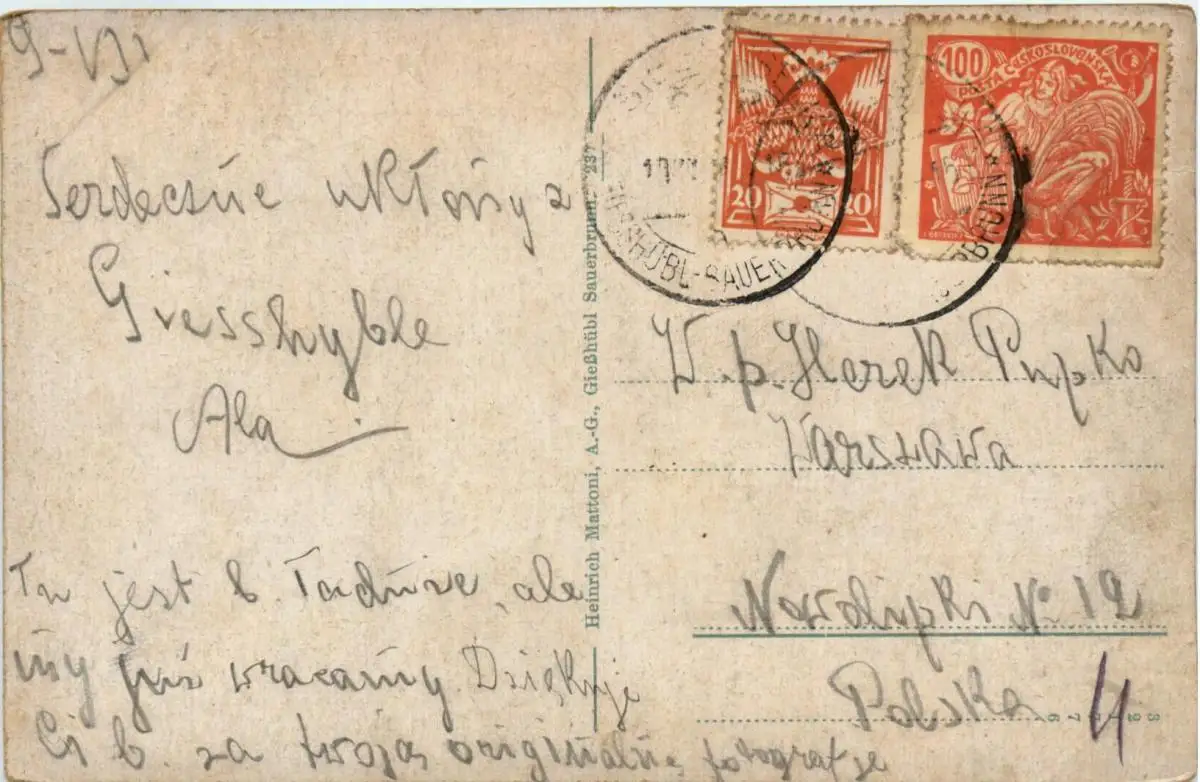 9-VII
Serdeczne ukłony z
Giesshyble
Ala
Tu jest b. ładnie, ale
my już wracamy. Dziękuję
Ci b. za twoją originalną fotografje
Heinrich Mattoni, A.-G., Gießhübl Sauerbrunn. 237
20 20
100
POŠTA ČESKOSLOVENSKÁ
GIESSHÜBL-SAUERBRUNN
W.p. Herek Pupko
Warszawa
Nowolipki № 12
Polska
4